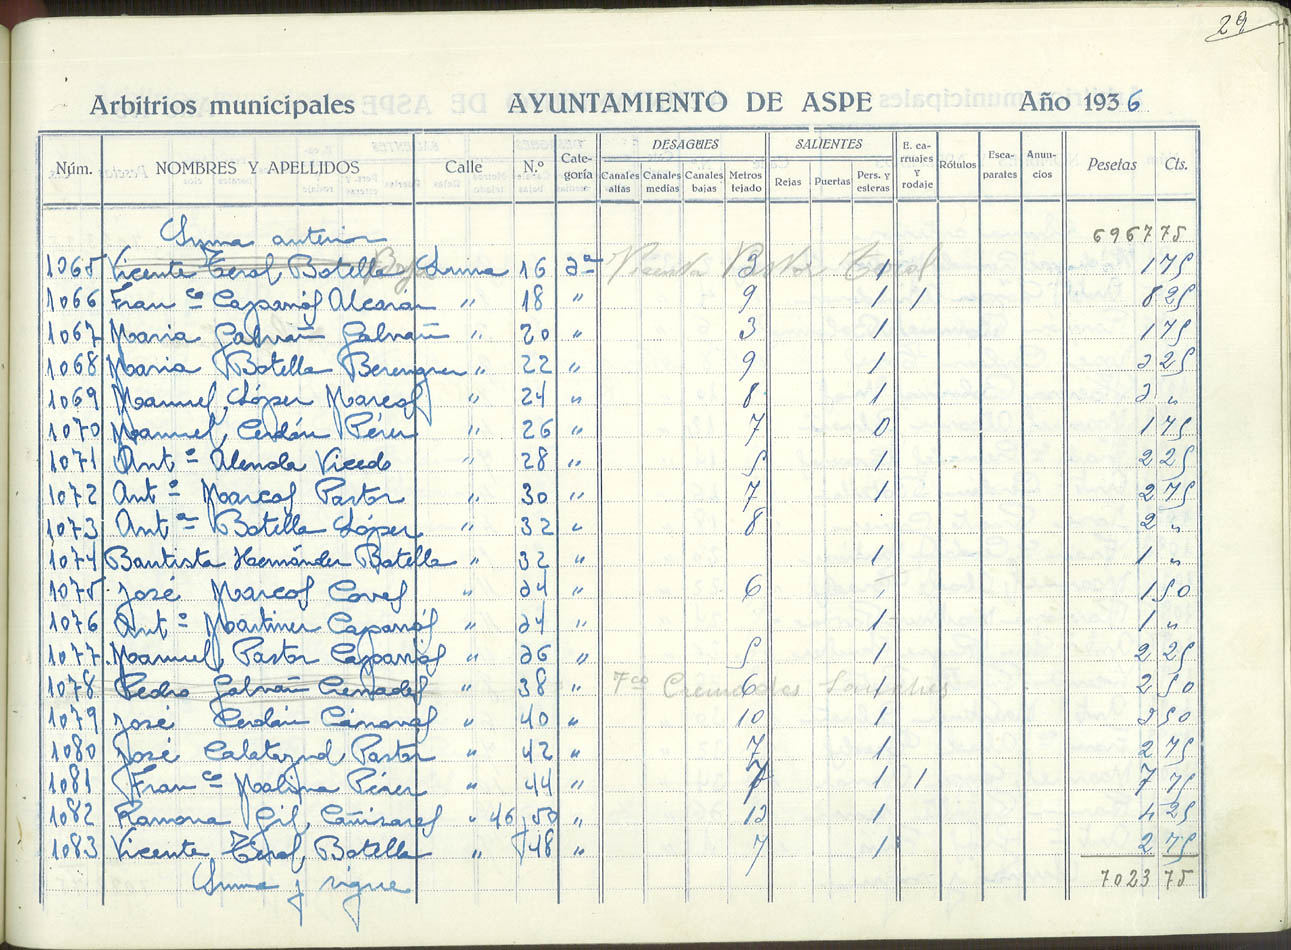 29
Arbitrios municipales AYUNTAMIENTO DE ASPE Año 1936
Núm. NOMBRES Y APELLIDOS Calle N.º Cate-goría DESAGUES Canales altas Canales medias Canales bajas Metros tejado SALIENTES Rejas Puertas Pers. y esteras E. ca-rruajes Y rodaje Rótulos Esca-parates Anun-cios Pesetas Cts.
Suma anterior 6967 75
1065 Vicente Terol Botella Luna 16 2ª 3 1 1 75
1066 Franco Capariós Alcaraz " 18 " 9 1 1 8 25
1067 Maria Galvañ Galvañ " 20 " 3 1 1 75
1068 Maria Botella Berenguer " 22 " 9 1 3 25
1069 Manuel López Marcos " 24 " 8 1 3 "
1070 Manuel Cerdán Pérez " 26 " 7 0 1 75
1071 Antº Alenda Vicedo " 28 " 5 1 2 25
1072 Antº Marcos Pastor " 30 " 7 1 2 75
1073 Antª Botella López " 32 " 8 2 "
1074 Bautista Hernández Botella " 32 " 1 1 "
1075 José Marcos Coves " 34 " 6 1 50
1076 Antº Martinez Capariós " 34 " 1 1 "
1077 Manuel Pastor Capariós " 36 " 5 1 2 25
1078 Pedro Galvañ Cremades " 38 " 6 1 2 50
1079 José Cerdán Cánovas " 40 " 10 1 3 50
1080 José Calatayud Pastor " 42 " 7 1 2 75
1081 Franco Molina Pérez " 44 " 7 1 1 7 75
1082 Ramona Gil Cañizares " 46 y 50 " 13 1 4 25
1083 Vicente Terol Botella " 48 " 7 1 2 75
Suma y sigue 7023 75